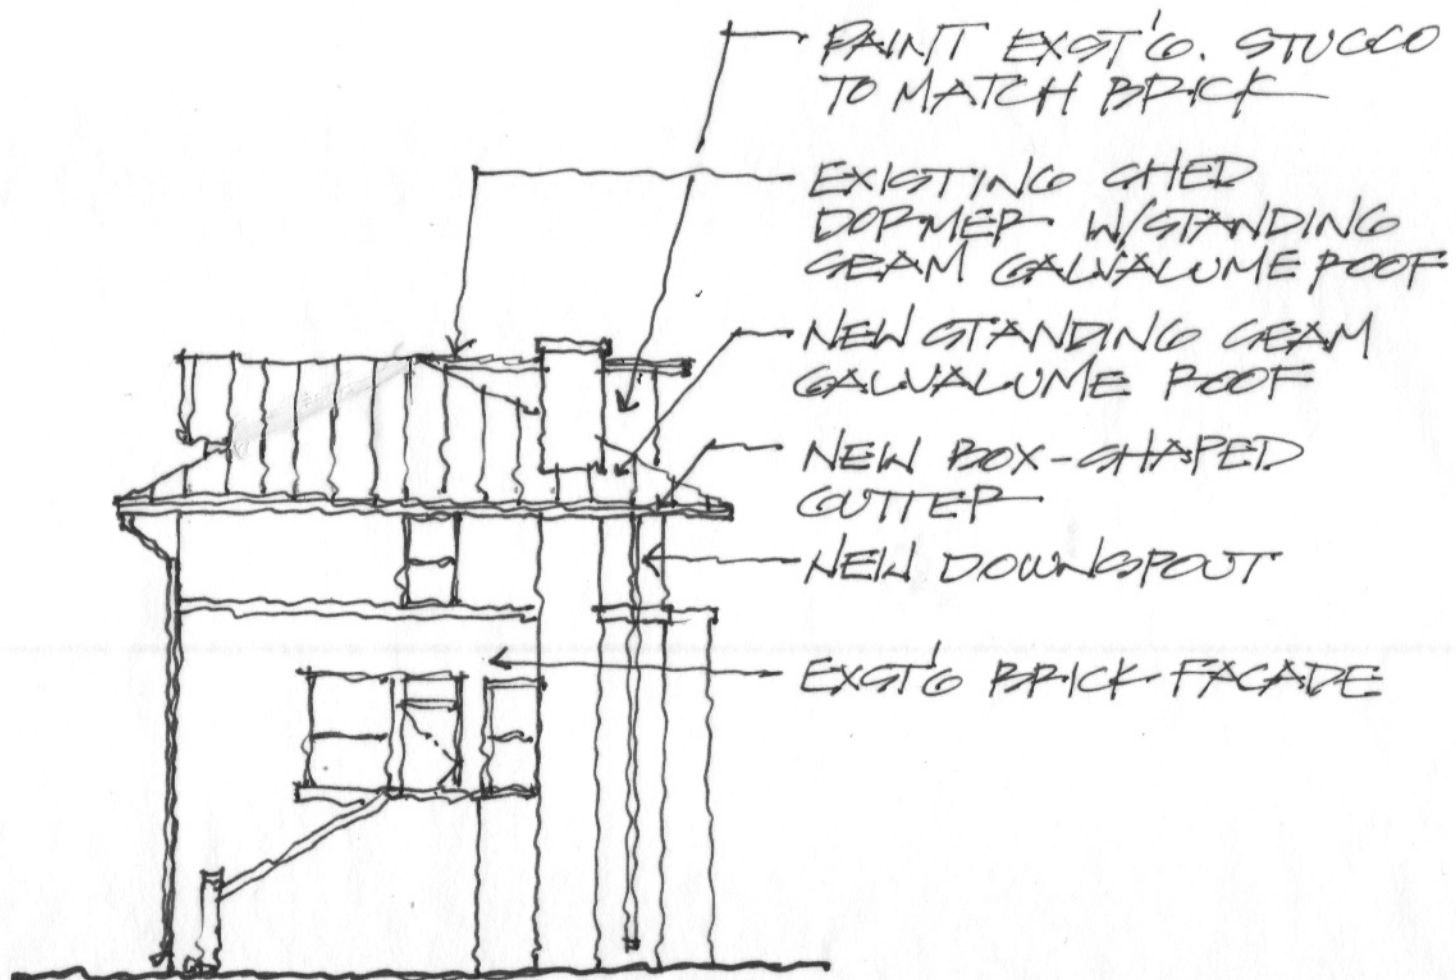 PAINT EXST'G. STUCCO
TO MATCH BRICK
EXISTING SHED
DORMER W/STANDING
SEAM GALVALUME ROOF
NEW STANDING SEAM
GALVALUME ROOF
NEW BOX-SHAPED
GUTTER
NEW DOWNSPOUT
EXST'G BRICK FACADE